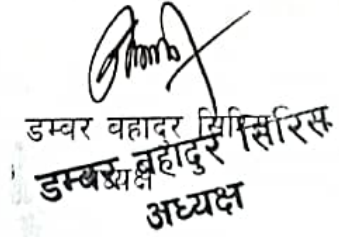 डम्वर वहादुर सिरिस
डम्वर बहादुर सिरिस
अध्यक्ष
अध्यक्ष